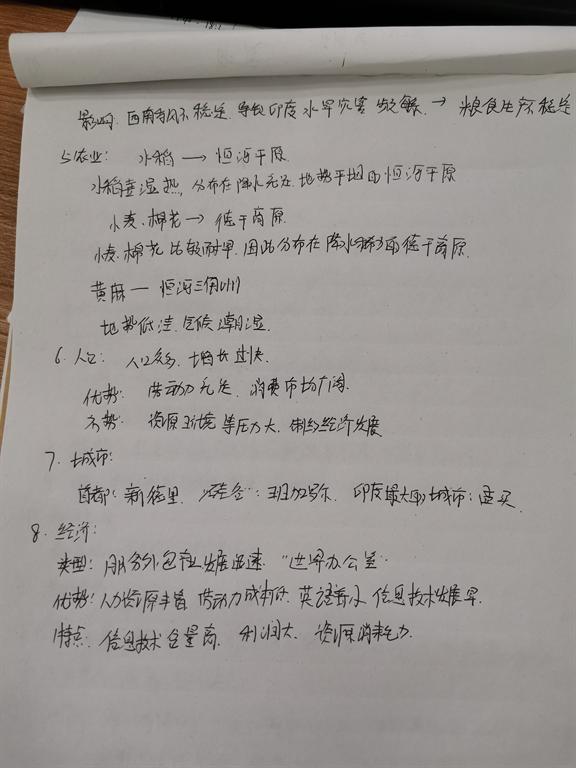 影响: 西南季风不稳定. 导致印度水旱灾害频繁. → 粮食生产不稳定
5.农业: 水稻 → 恒河平原.
水稻喜湿热, 分布在降水充足. 地势平坦的恒河平原
小麦、棉花 → 德干高原.
小麦、棉花比较耐旱. 因此分布在降水稀少的德干高原.
黄麻 — 恒河三角洲
地势低洼. 气候潮湿.
6. 人口: 人口众多, 增长过快
优势: 劳动力充足, 消费市场广阔.
劣势: 资源环境等压力大、制约经济发展
7. 城市:
首都: 新德里. "硅谷": 班加罗尔. 印度最大的城市: 孟买.
8. 经济:
类型: 服务外包业发展迅速. "世界办公室"
优势: 人力资源丰富, 劳动力成本低. 英语普及. 信息技术发展早.
特点: 信息技术含量高, 利润大, 资源消耗少.